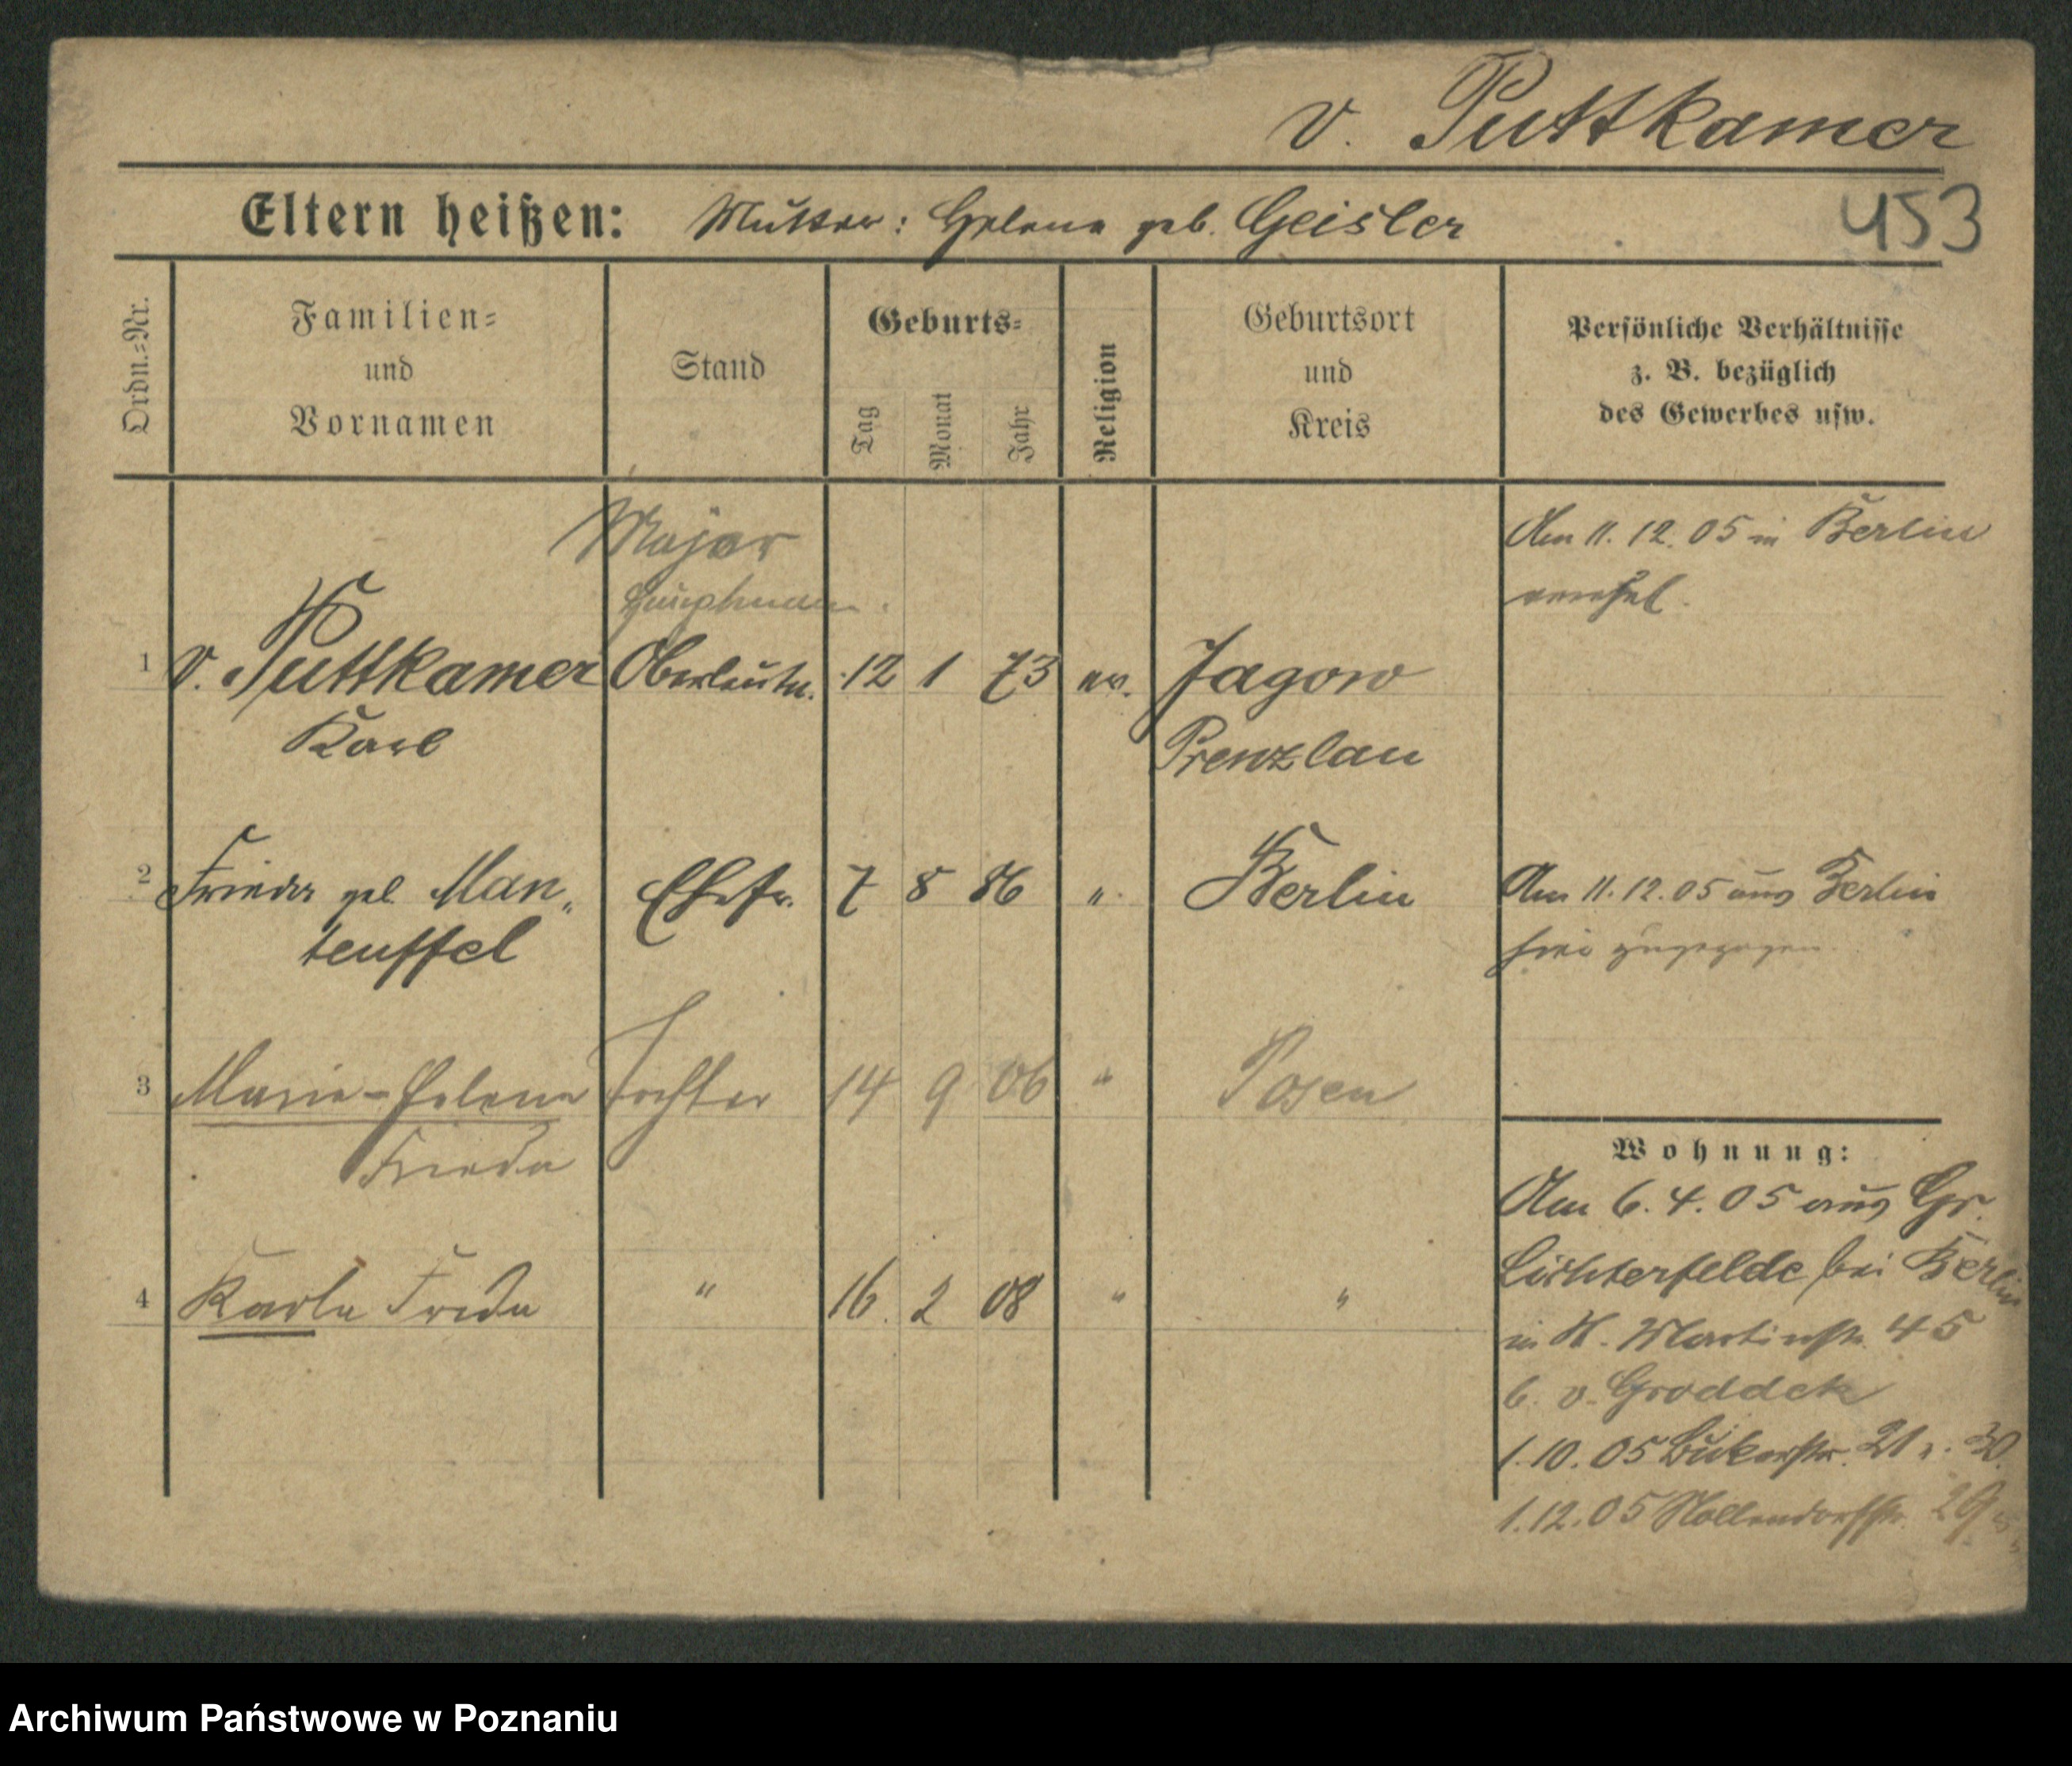 v. Puttkamer
Eltern heißen: Mutter: Helene geb. Geisler
453
Ordn.-Nr.
Familien-
und
Vornamen
Stand
Geburts-
Tag
Monat
Jahr
Religion
Geburtsort
und
Kreis
Persönliche Verhältnisse
z. B. bezüglich
des Gewerbes usw.
Major
Hauptmann.
1 v. Puttkamer Oberleutn. 12 1 73 ev. Jagow
Karl Prenzlau
Am 11. 12. 05 in Berlin
verehel.
2 Frieda geb. Man„ Ehefr. 7 8 86 „ Berlin
teuffel
Am 11. 12. 05 aus Berlin
hier zugezogen
3 Marie-Helene Tochter 14 9 06 " Posen
Frieda
4 Karla Freda " 16. 2 08 " "
Wohnung:
Am 6. 4. 05 aus Gr.
Lichterfelde bei Berlin
in St. Martinstr. 45
b. v. Groddek
1. 10. 05 21 30.
1. 12. 05 Nollendorfstr. 29
Archiwum Państwowe w Poznaniu